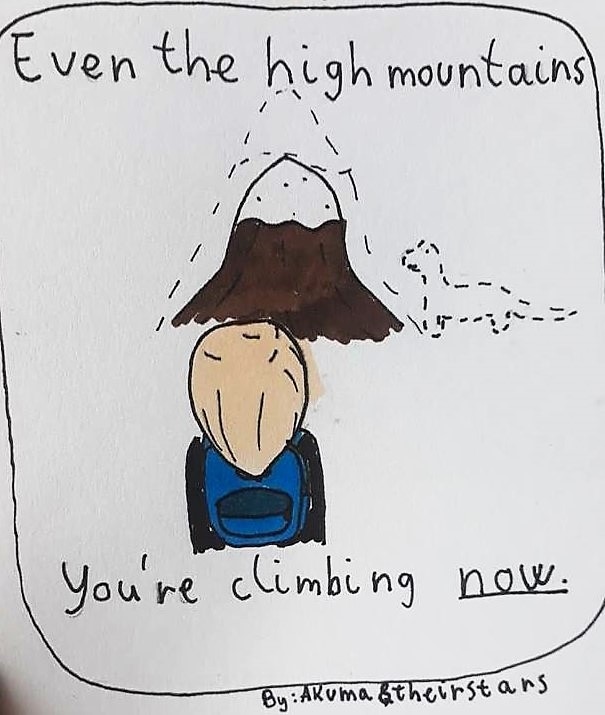 Even the high mountains
You're climbing now.
By: AKuma &theirstars